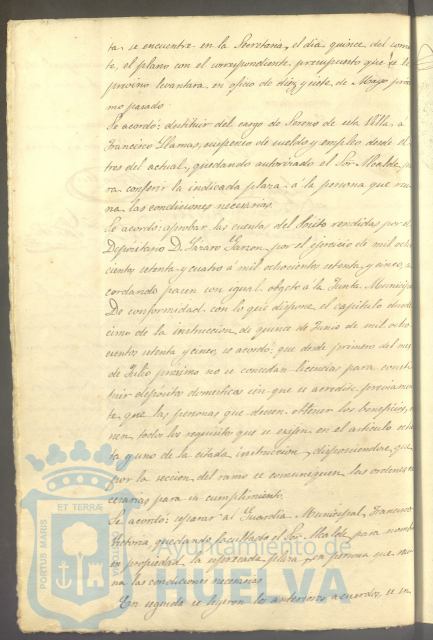 ta se encuentre en la Secretaria, el dia quince del corrien
te, el plano con el correspondiente presupuesto que se le
previno levantara, en oficio de diez y siete de Mayo próxi
mo pasado.
Se acordó: destituir del cargo de Sereno de esta Villa, a
Francisco Llamas, suspenso de sueldo y empleo desde el
tres del actual, quedando autorizado el Sor. Alcalde pa
ra conferir la indicada plaza a la persona que reu
na las condiciones necesarias.
Se acordó: aprobar las cuentas del Pósito rendidas por el
Depositario D. Lázaro Garzon, por el ejercicio de mil ocho
cientos setenta y cuatro á mil ochocientos setenta y cinco, a
cordando pasen con igual objeto a la Junta Municipal.
De conformidad con lo que dispone el capítulo duodé
cimo de la instruccion de quince de Junio de mil ocho
cientos setenta y cinco, se acordó: que desde primero del mes
de Julio próximo no se concedan licencias para const
tuir depósitos domesticos sin que se acredite previamen
te, que las personas que deseen obtener los beneficios, re
unen todos los requisitos que se exijen en el artículo
ta y uno de la citada instruccion, disponiendose, que
por la seccion del ramo se comuniquen las ordenes ne
cesarias para su cumplimiento.
Se acordó: separar al Guardia Municipal, Francisco
Victoria, quedando facultado el Sor. Alcalde para nombrar
en propiedad, la espresada plaza, a persona que reu
na las condiciones necesarias.
En seguida se leyeron los anteriores acuerdos, se
PORTUS MARIS ET TERRÆ CUSTODIA
Ayuntamiento de
HUELVA